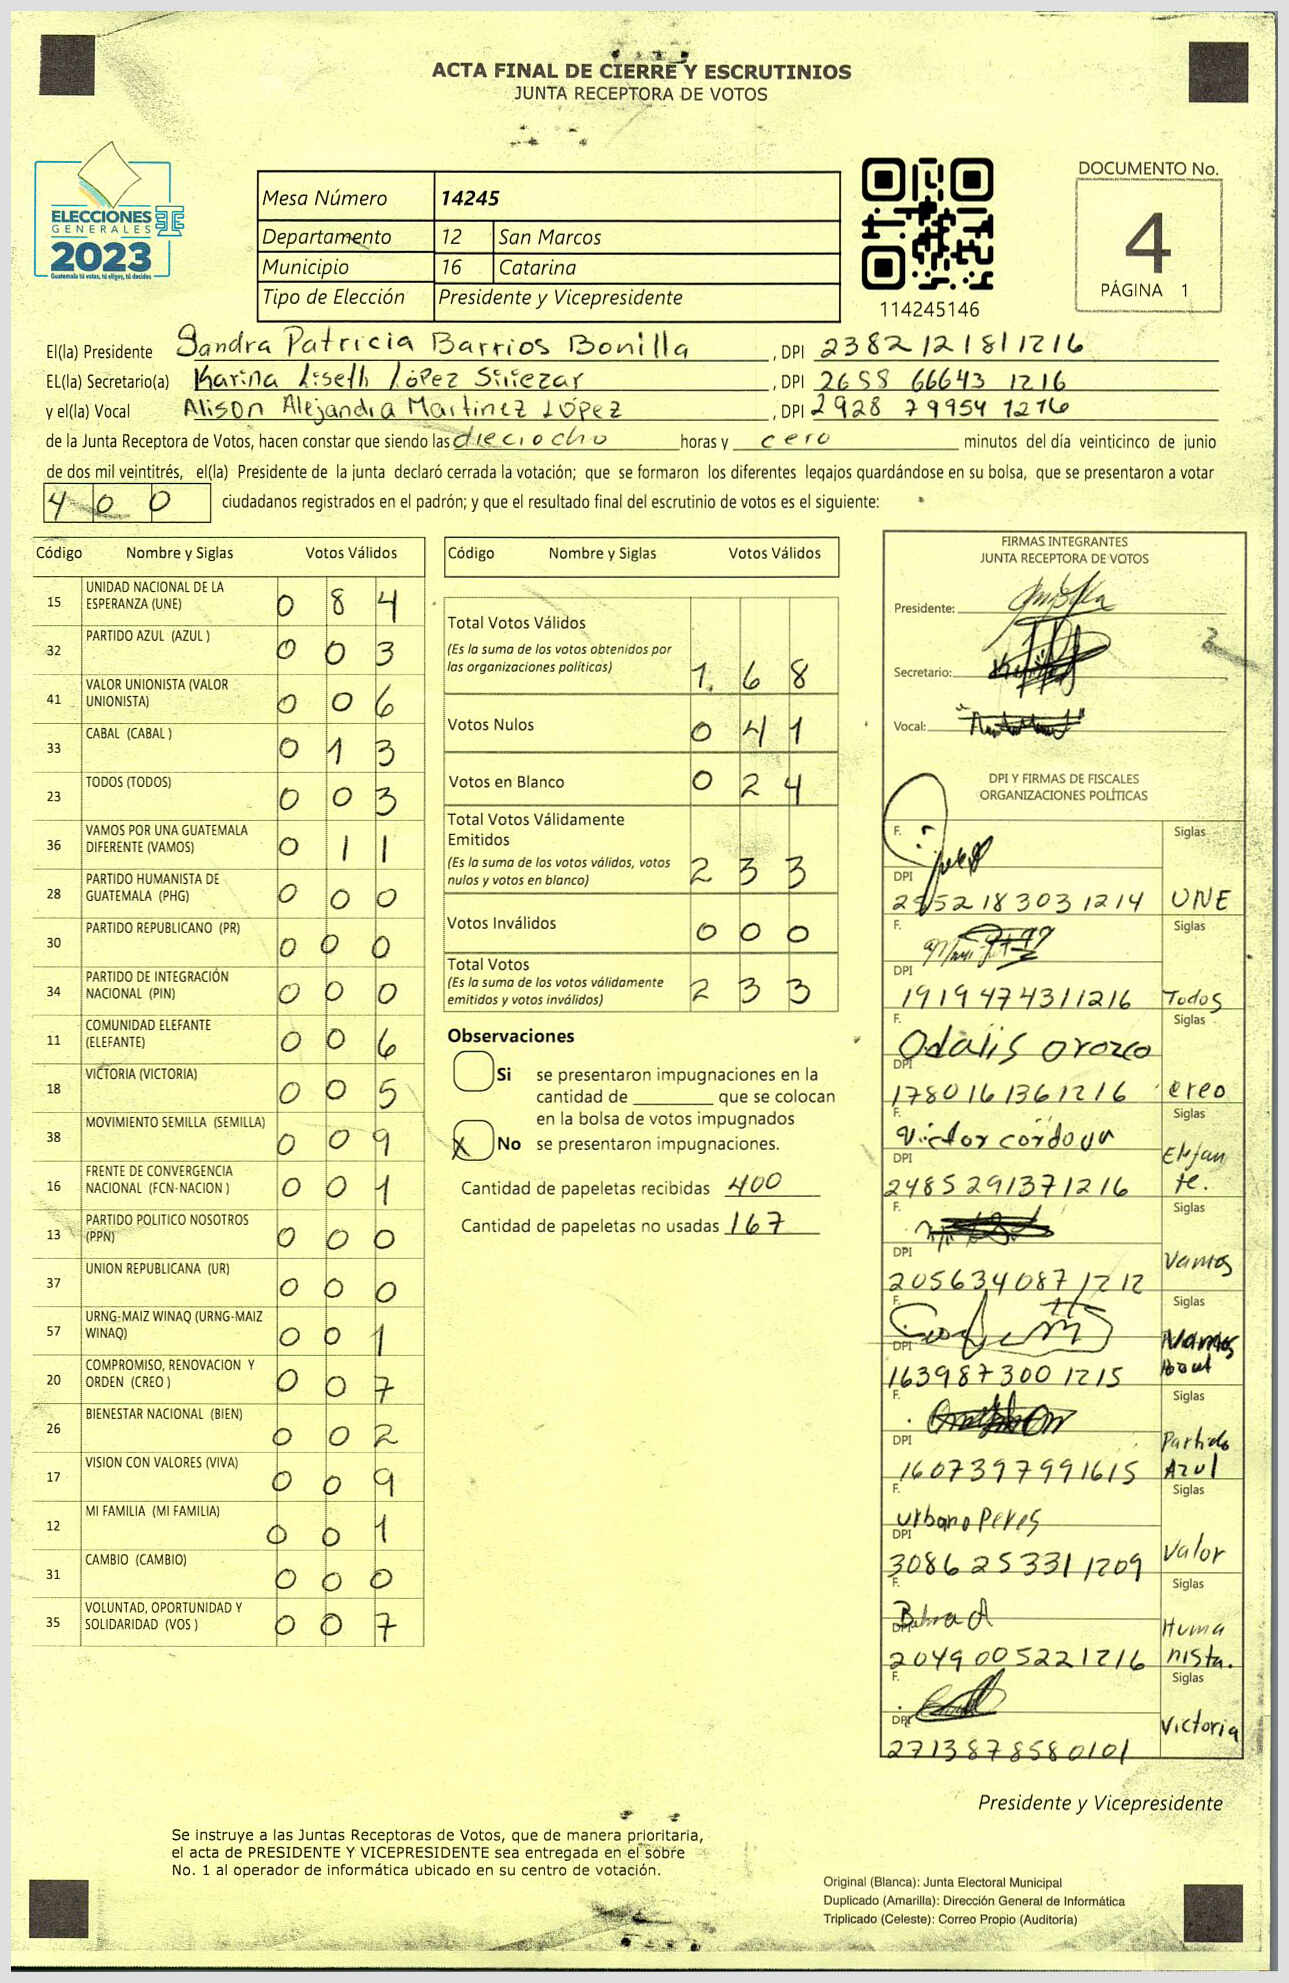 ACTA FINAL DE CIERRE Y ESCRUTINIOS
JUNTA RECEPTORA DE VOTOS
ELECCIONES
GENERALES
2023
Guatemala tú votas, tú eliges, tú decides
Mesa Número 14245
Departamento 12 San Marcos
Municipio 16 Catarina
Tipo de Elección Presidente y Vicepresidente
114245146
DOCUMENTO No.
4
PÁGINA 1
El(la) Presidente Sandra Patricia Barrios Bonilla , DPI 2382 12181 1216
EL(la) Secretario(a) Karina Liseth López , DPI 2658 66643 1216
y el(la) Vocal Alison Alejandra Martinez López , DPI 2928 79954 1216
de la Junta Receptora de Votos, hacen constar que siendo las dieciocho horas y cero minutos del día veinticinco de junio
de dos mil veintitrés, el(la) Presidente de la junta declaró cerrada la votación; que se formaron los diferentes legajos guardándose en su bolsa, que se presentaron a votar
4 0 0 ciudadanos registrados en el padrón; y que el resultado final del escrutinio de votos es el siguiente:
Código Nombre y Siglas Votos Válidos
15 UNIDAD NACIONAL DE LA ESPERANZA (UNE) 0 8 4
32 PARTIDO AZUL (AZUL ) 0 0 3
41 VALOR UNIONISTA (VALOR UNIONISTA) 0 0 6
33 CABAL (CABAL ) 0 1 3
23 TODOS (TODOS) 0 0 3
36 VAMOS POR UNA GUATEMALA DIFERENTE (VAMOS) 0 1 1
28 PARTIDO HUMANISTA DE GUATEMALA (PHG) 0 0 0
30 PARTIDO REPUBLICANO (PR) 0 0 0
34 PARTIDO DE INTEGRACIÓN NACIONAL (PIN) 0 0 0
11 COMUNIDAD ELEFANTE (ELEFANTE) 0 0 6
18 VICTORIA (VICTORIA) 0 0 5
38 MOVIMIENTO SEMILLA (SEMILLA) 0 0 9
16 FRENTE DE CONVERGENCIA NACIONAL (FCN-NACION ) 0 0 1
13 PARTIDO POLITICO NOSOTROS (PPN) 0 0 0
37 UNION REPUBLICANA (UR) 0 0 0
57 URNG-MAIZ WINAQ (URNG-MAIZ WINAQ) 0 0 1
20 COMPROMISO, RENOVACION Y ORDEN (CREO ) 0 0 7
26 BIENESTAR NACIONAL (BIEN) 0 0 2
17 VISION CON VALORES (VIVA) 0 0 9
12 MI FAMILIA (MI FAMILIA) 0 0 1
31 CAMBIO (CAMBIO) 0 0 0
35 VOLUNTAD, OPORTUNIDAD Y SOLIDARIDAD (VOS ) 0 0 7
Código Nombre y Siglas Votos Válidos
Total Votos Válidos
(Es la suma de los votos obtenidos por
las organizaciones políticas) 1 6 8
Votos Nulos 0 4 1
Votos en Blanco 0 2 4
Total Votos Válidamente
Emitidos
(Es la suma de los votos válidos, votos
nulos y votos en blanco) 2 3 3
Votos Inválidos 0 0 0
Total Votos
(Es la suma de los votos válidamente
emitidos y votos inválidos) 2 3 3
Observaciones
Si se presentaron impugnaciones en la
cantidad de ________ que se colocan
en la bolsa de votos impugnados
X No se presentaron impugnaciones.
Cantidad de papeletas recibidas 400
Cantidad de papeletas no usadas 167
FIRMAS INTEGRANTES
JUNTA RECEPTORA DE VOTOS
Presidente:
Secretario:
Vocal:
DPI Y FIRMAS DE FISCALES
ORGANIZACIONES POLÍTICAS
F. Siglas
DPI
2552 18303 1214 UNE
F. Siglas
DPI
1919 47431 1216 Todos
F. Odalis Orozco Siglas
DPI
1780 16136 1216 creo
F. Victor cordova Siglas
DPI Elefan
2485 29137 1216 te.
F. Siglas
DPI
2056 34087 1212 Vamos
F. Siglas
DPI
1639 87300 1215
F. Siglas
DPI Partido
1607 39799 1615 Azul
F. Urbano Peres Siglas
DPI
3086 25331 1209 Valor
F. Siglas
DPI Huma
2049 00522 1216 nista.
F. Siglas
DPI
2713 87858 0101 Victoria
Presidente y Vicepresidente
Se instruye a las Juntas Receptoras de Votos, que de manera prioritaria,
el acta de PRESIDENTE Y VICEPRESIDENTE sea entregada en el sobre
No. 1 al operador de informática ubicado en su centro de votación.
Original (Blanca): Junta Electoral Municipal
Duplicado (Amarilla): Dirección General de Informática
Triplicado (Celeste): Correo Propio (Auditoría)